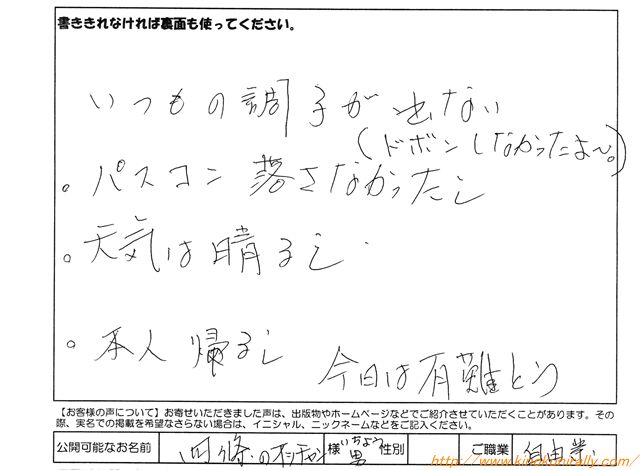 書ききれなければ裏面も使ってください。
いつもの調子が出ない
(ドボンしなかったよ〜。)
。パスコン落さなかったし
。天気は晴るし
。本人帰るし
今日は有難とう
【お客様の声について】お寄せいただきました声は、出版物やホームページなどでご紹介させていただくことがあります。その
際、実名での掲載を希望なさらない場合は、イニシャル、ニックネームなどをご記入ください。
公開可能なお名前 四條のオッチャン 様 いちよう 性別 男 ご職業 自由業